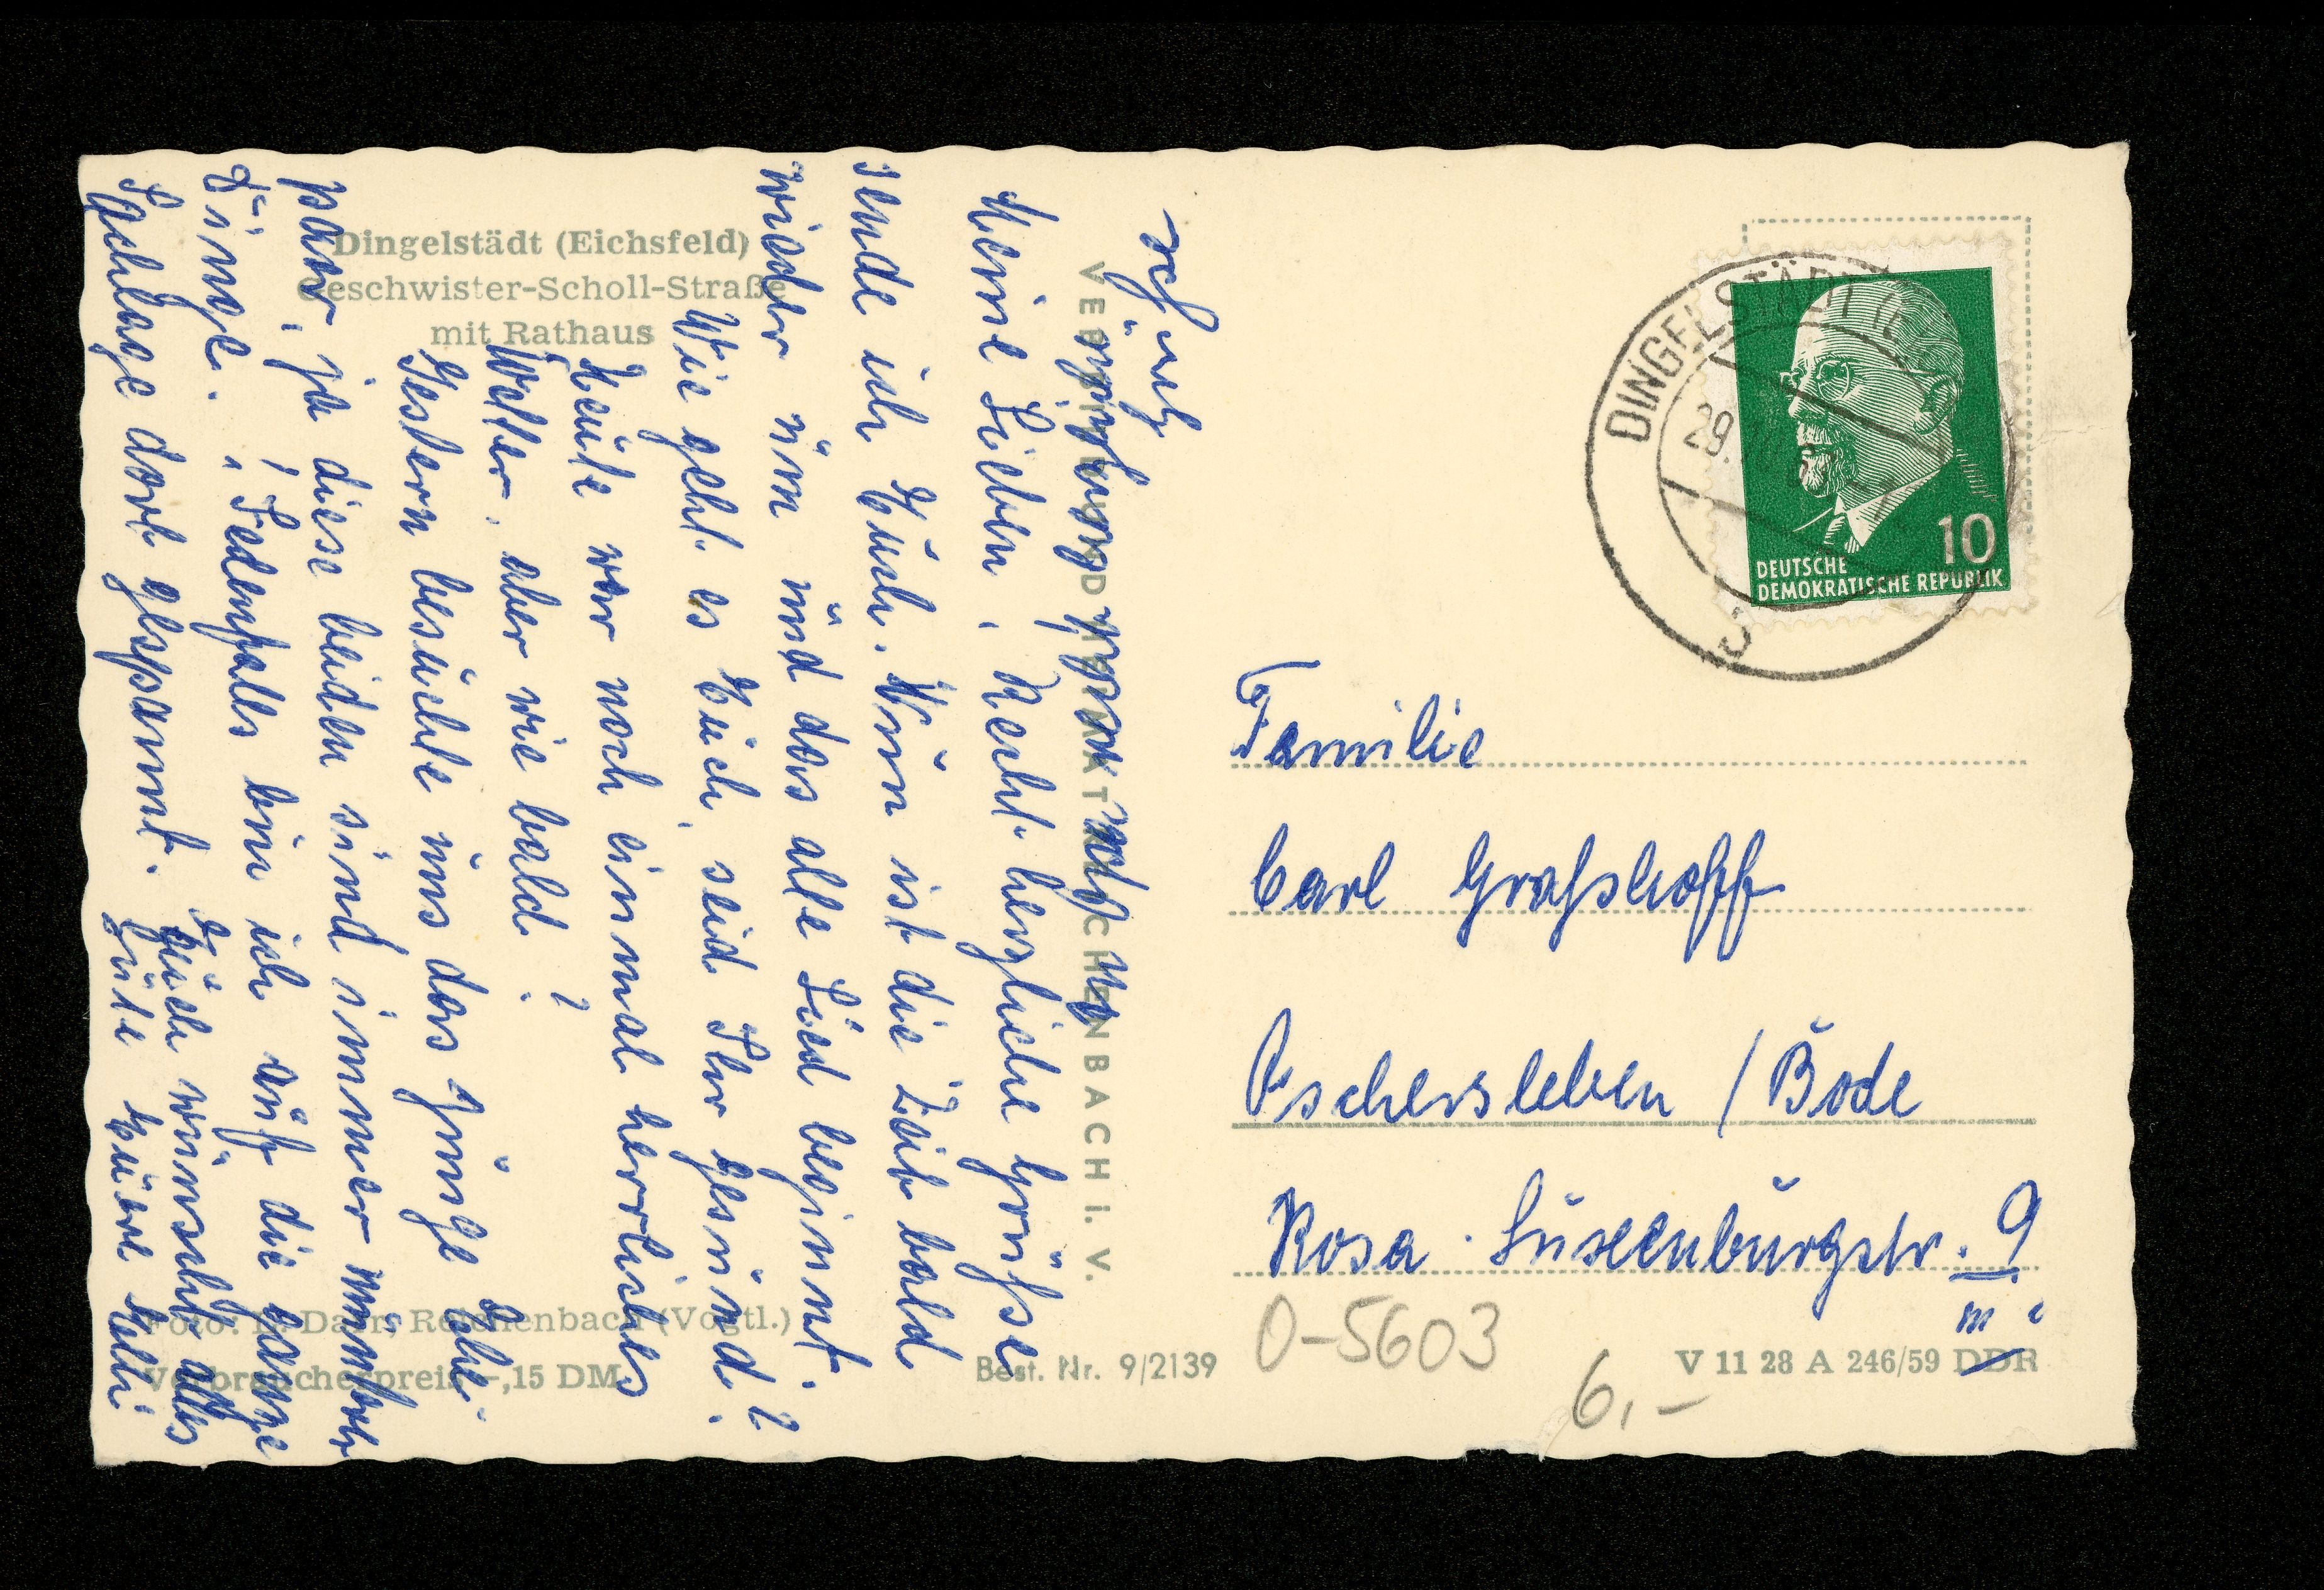 Dingelstädt (Eichsfeld)
Geschwister-Scholl-Straße
mit Rathaus
Meine Lieben, Recht herzliche Grüße
sende ich Euch. Nun ist die Zeit bald
wieder um und das alte Lied beginnt.
Wie geht es Euch, seid Ihr gesund?
Heute war noch einmal herrliches
Wetter, aber wie bald?
Gestern besuchte uns das junge Ehe-
paar, ja diese beiden sind immer
Dinge. Jedenfalls bin ich auf die
Sachlage dort gespannt. Euch wünscht alles
Gute Eure
VEB BILD UND HEIMAT REICHENBACH I. V.
Foto: Darr, Reichenbach (Vogtl.)
Verbraucherpreis -,15 DM
Best. Nr. 9/2139
DINGELSTÄDT
29.
b
10
DEUTSCHE
DEMOKRATISCHE REPUBLIK
Familie
Carl Graßhoff
Oschersleben / Bode
Rosa-Luxenburgstr. 9
O-5603
6,-
V 11 28 A 246/59 DDR